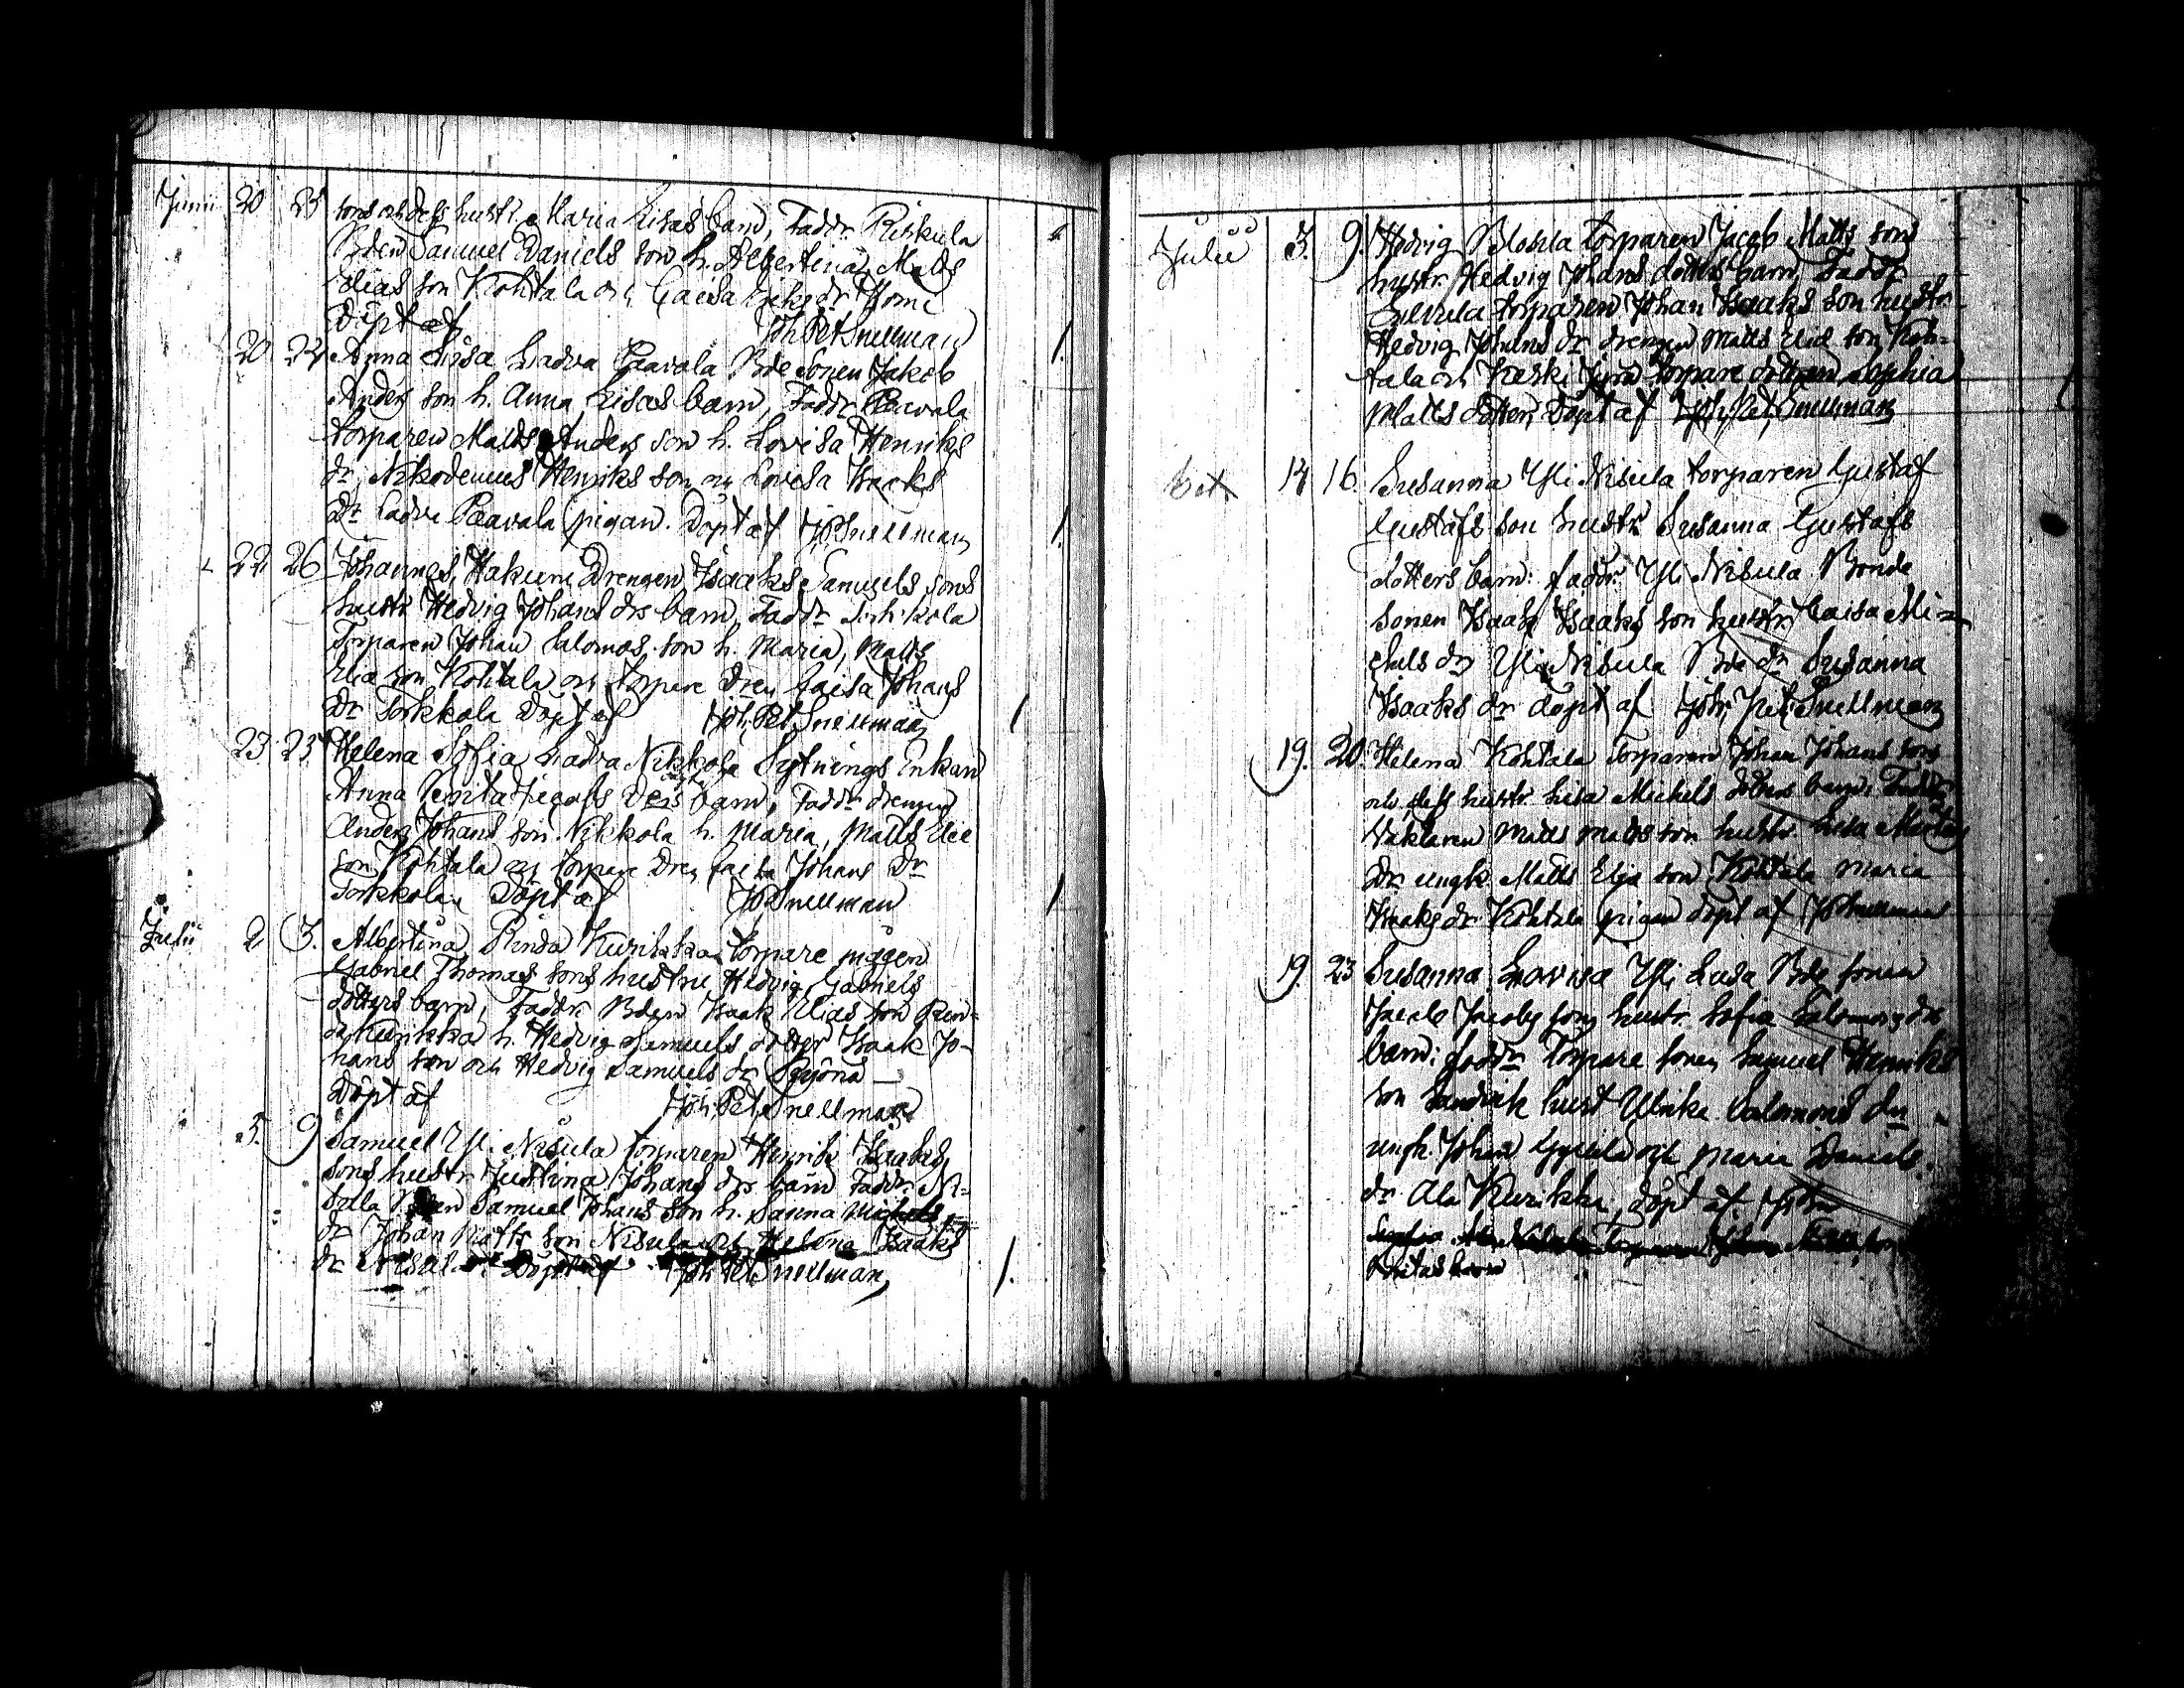 Junii 20 25 sons och dess hustr. Maria Lisas barn, Faddr. Riskula
Bden Samuel Daniels son h. Albertina, Matts
Elias son Kohtala och Caisa
Döpt af Joh Pet Snellman
20 24 Anna Lisa Ladva Paavola Bde Sonen Jakob
Anders son h. Anna Lisas barn, Faddr Paavola
torparen Matts Anders son h. Lovisa Henriks
dr, Nikodemus Henriks son och Lovisa Isaaks
Dr Ladva Paavola pigan. Döpt af JPSnellman
22 26 Johannes, Hakuni Drengen Isaaks Samuels sons
hustr Hedvig Johans drs barn, Faddr
Torparen Johan Salomos son h. Maria, Matts
Elia son Kohtala och torpare Caisa Johans
Dr Torkkola Döpt af Joh. Pet Snellman
23 25 Helena Sofia Ladva Nikkola Sytnings Enkan
Anna barn, Faddr drengen
Anders Johans son Nikkola h. Maria, Matts Elie
son Kohtala och torpare Johans Dr
Torkkola Döpt af JPSnellman
Julii 2 3. Albertina, Rinda Kurikka torpare mågen
Gabriel Thomas sons hustru Hedvig Gabriels
dotters barn, Faddr. Bden Isaak Elias son Rin-
da Kurikka h. Hedvig Samuels dotter Isaak Jo-
hans son och Hedvig Samuels dr
Döpt af Joh. Pet. Snellman
5. 9 Samuel Yli Nisula torparen Henrik Isaaks
sons hustr Justina Johans drs barn Faddr Ni-
Samuel Johans son h. Sanna Michels
dr Johan Matts son Nisula och Helena Isaaks
dr Döpt af Joh Pet Snellman
Julii 3. 9. Hedvig torparen Jacob Matts sons
hustr. Hedvig Johans dotters barn, Faddr
torparen Johan Isaaks son hustr
Hedvig Johans dr drengen Matts Elie son Koh-
tala och Keski torpare dottren Sophia
Matts dotter, Döpt af Joh. Pet. Snellman
14 16. Susanna Yli Nisula torparen Gustaf
Gustafs son hustr Susanna Gustafs
dotters barn: faddr. Yli Nisula Bonde
sonen Isaak Isaaks son hustr. Caisa Mi-
chels dr Yli Nisula Bde dr Susanna
Isaaks dr döpt af Joh. Pet Snellman
19. 20. Helena Kohtala Torparen Johan Johans sons
och dess hustr. Lisa Mickels dotters barn, Faddr
Matts Matts son hustr. Lisa
Dr ungk. Matts Elja son Kohtala Maria
Isaaks dr Kohtala pigan döpt af JPSnellman
19. 23 Susanna Lovisa Yli Lusa Bde sonen
Jacob Jacobs sons hustr. Sofia Salomons drs
barn: faddr Torpare sonen Samuel Henriks
son hust Ulrika Salomons dr
ungk. Johan och Maria Daniels
dr Ala Kurikka, döpt af